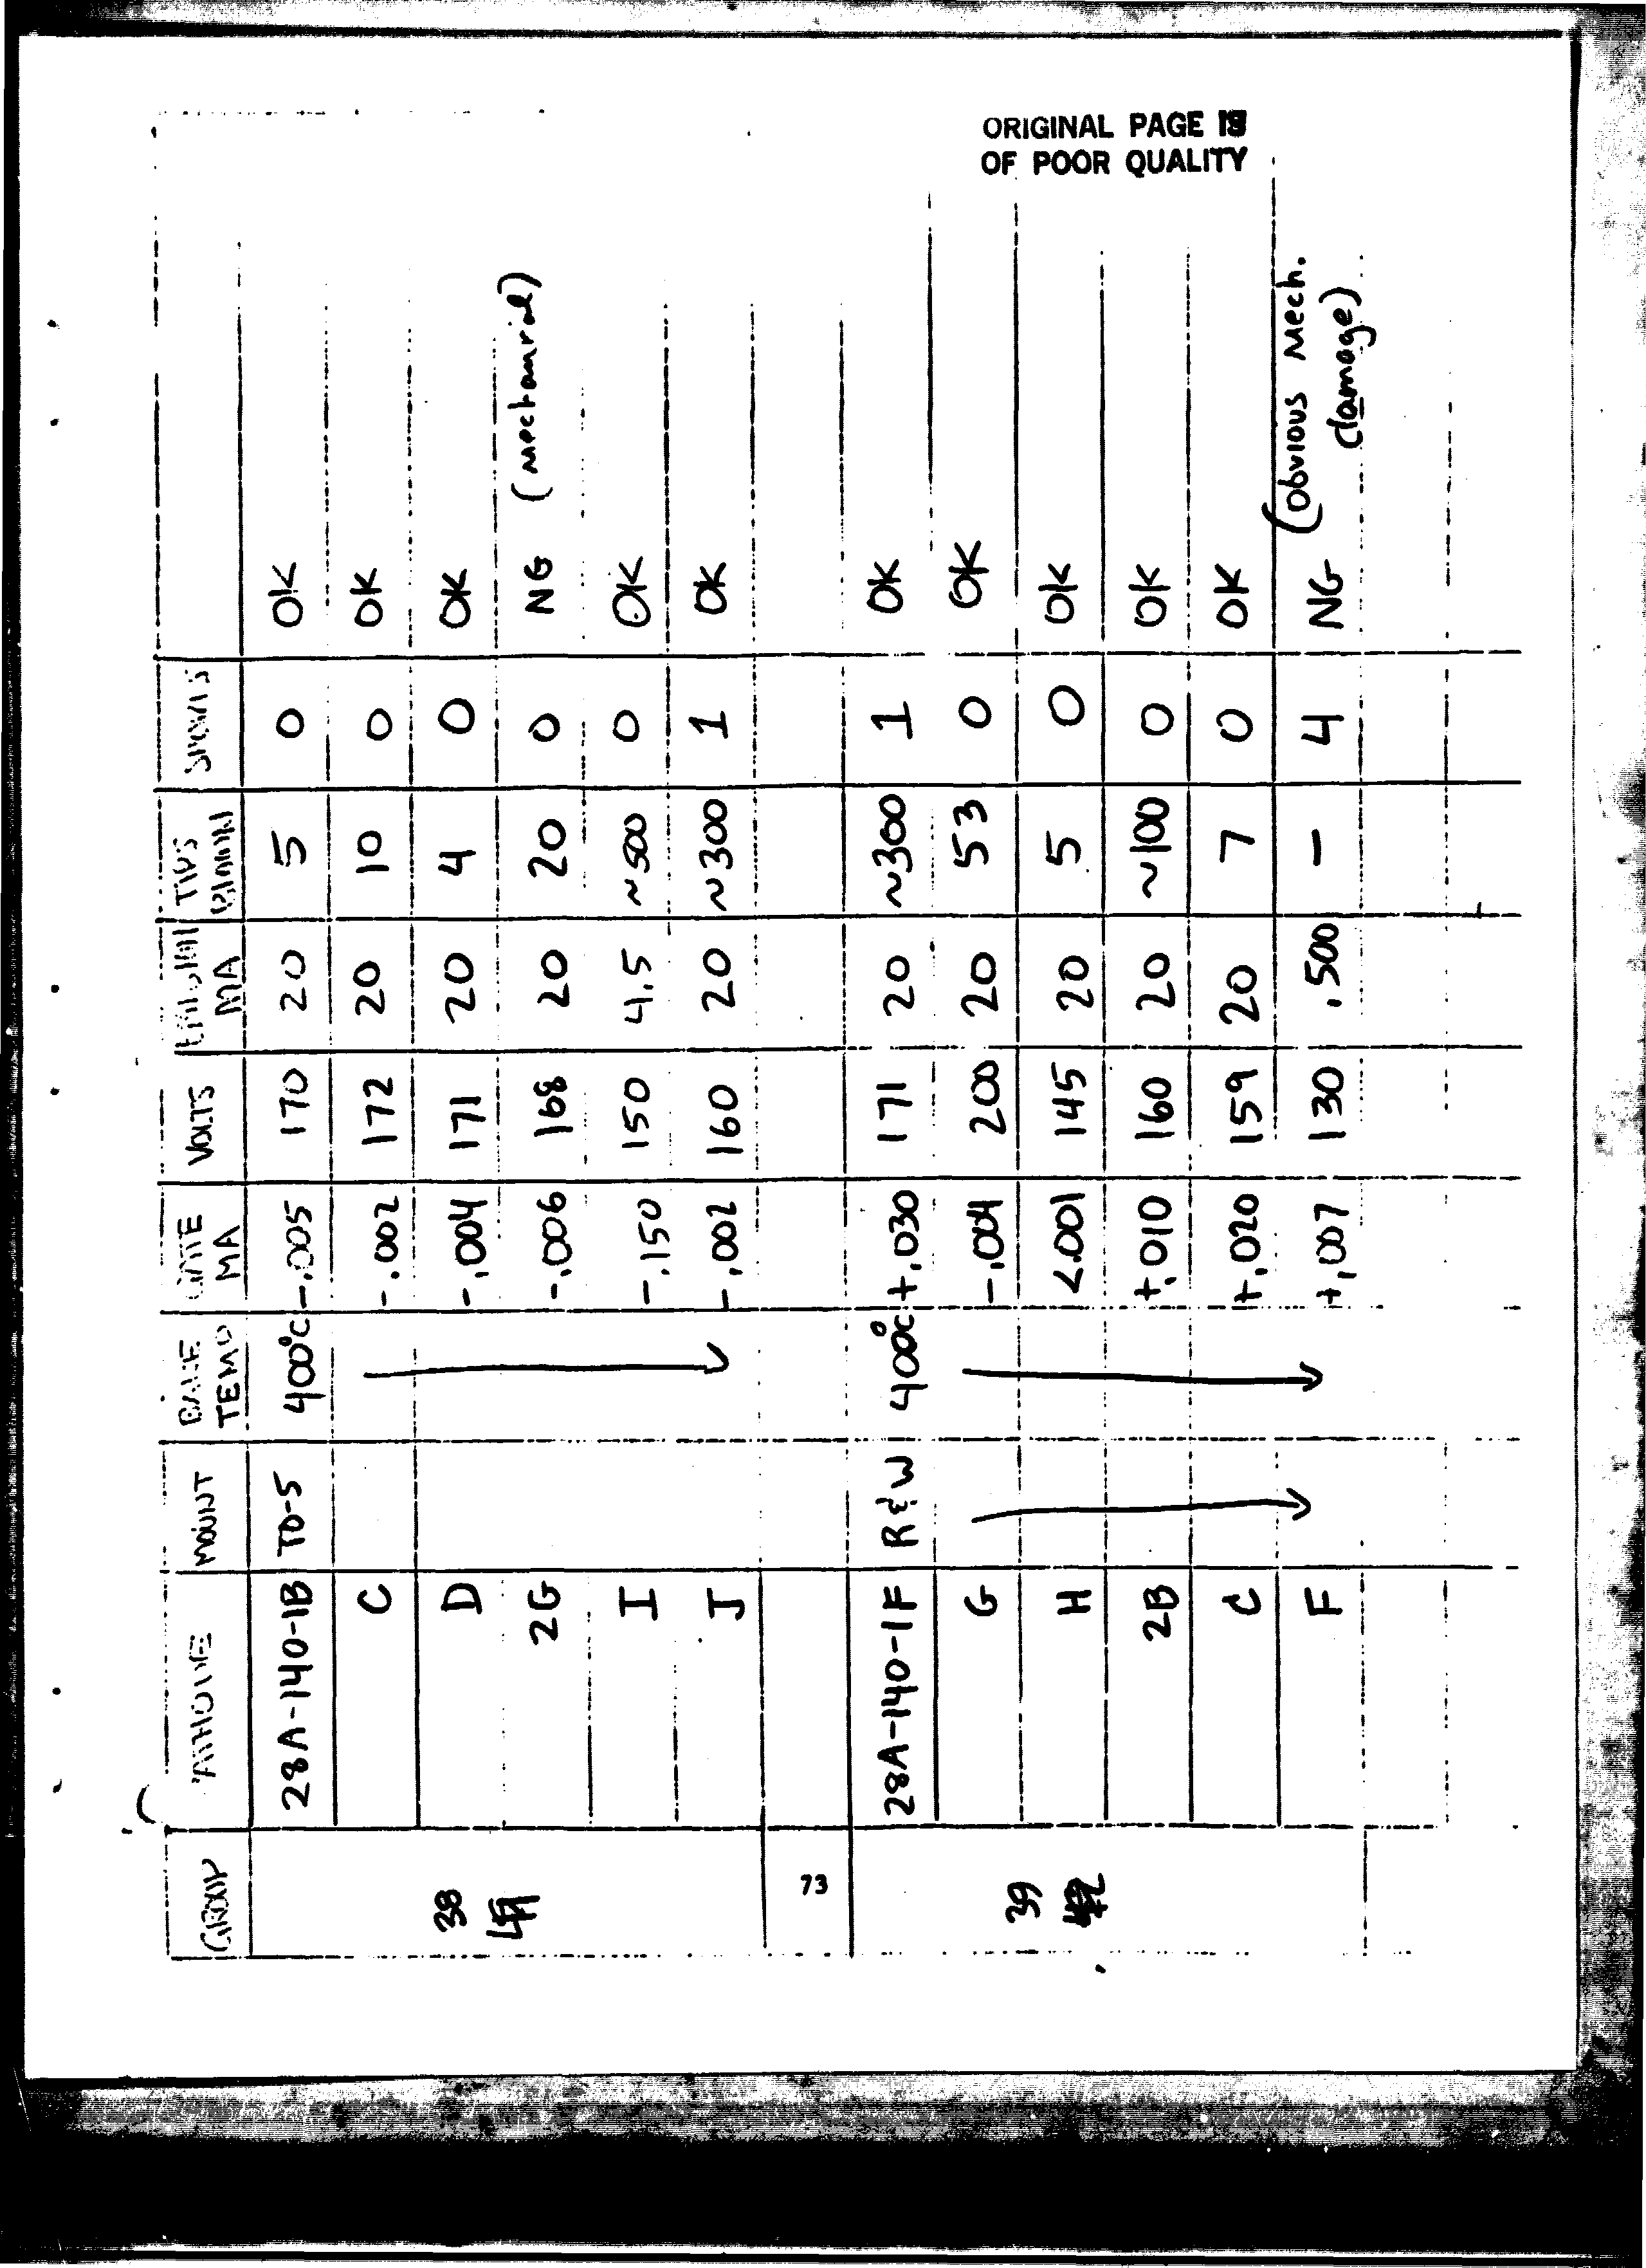 ORIGINAL PAGE IS
OF POOR QUALITY
GROUP CATHODE MOUNT BAKE TEMP GATE MA VOLTS EMISSION MA TIPS SHORTS
38 28A-140-1B TO-5 400°C -.005 170 20 5 0 OK
C -.002 172 20 10 0 OK
D -.004 171 20 4 0 OK
2G -.006 168 20 20 0 NG (mechanical)
I -.150 150 4.5 ~500 0 OK
J -.002 160 20 ~300 1 OK
73
39 28A-140-1F R&W 400°C +.030 171 20 ~300 1 OK
G -.004 200 20 53 0 OK
H <.001 145 20 5 0 OK
2B +.010 160 20 ~100 0 OK
C +.020 159 20 7 0 OK
F +.007 130 .500 - 4 NG (obvious mech.
damage)